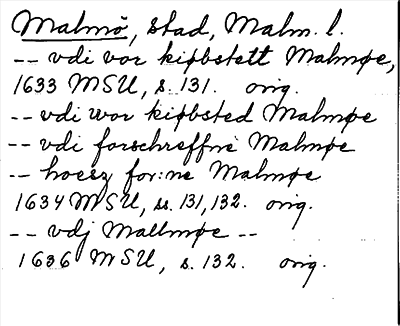 Malmö, stad, Malm. l.
-- vdi vor kiøbstett Malmøe,
1633 MSU, s. 131. orig.
-- vdi wor kiøbsted Malmøe
-- vdi forschreffne Malmøe
-- hoesz for:ne Malmøe
1634 MSU, ss. 131, 132. orig.
-- vdj Mallmøe --
1636 MSU, s. 132. orig.